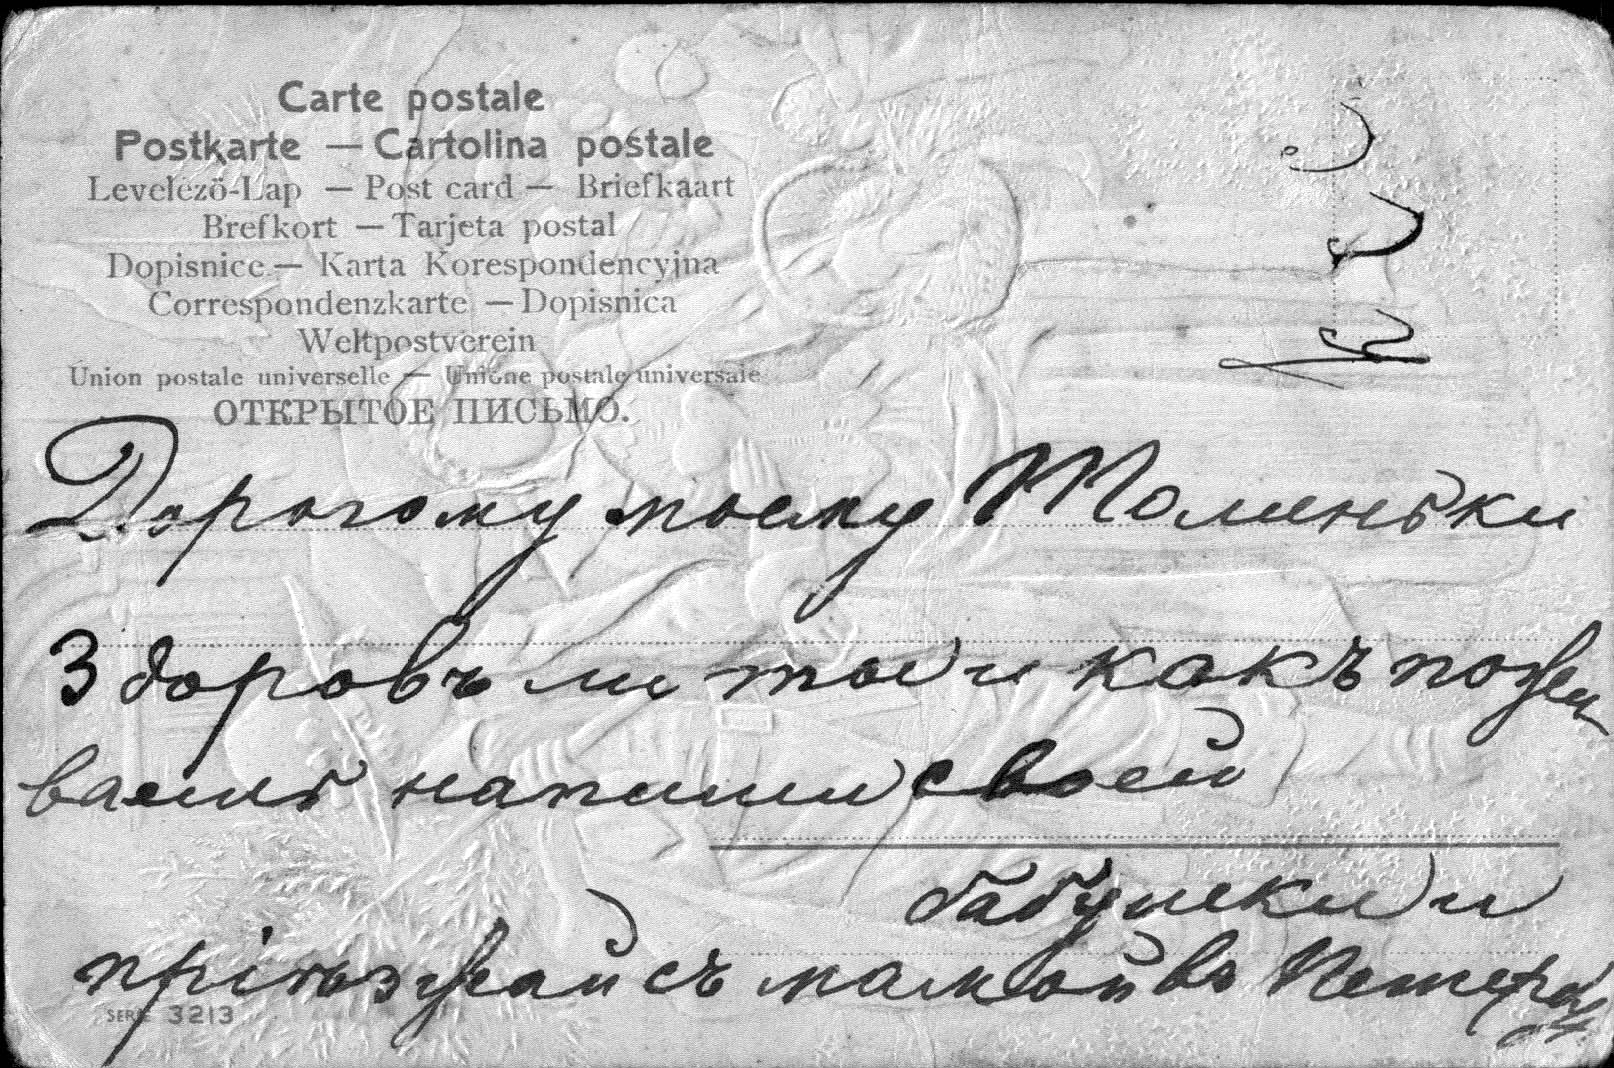 Carte postale
Postkarte — Cartolina postale
Levelező-Lap — Post card — Briefkaart
Brefkort — Tarjeta postal
Dopisnice — Karta Korespondencyjna
Correspondenzkarte — Dopisnica
Weltpostverein
Union postale universelle — Unione postale universale
ОТКРЫТОЕ ПИСЬМО.
Дорогому моему Толиньки
Здоровъ ли ты и какъ пожи
ваешь напиши своей
бабушки и
пріѣзжай съ мамой въ Петерб
SERIE 3213